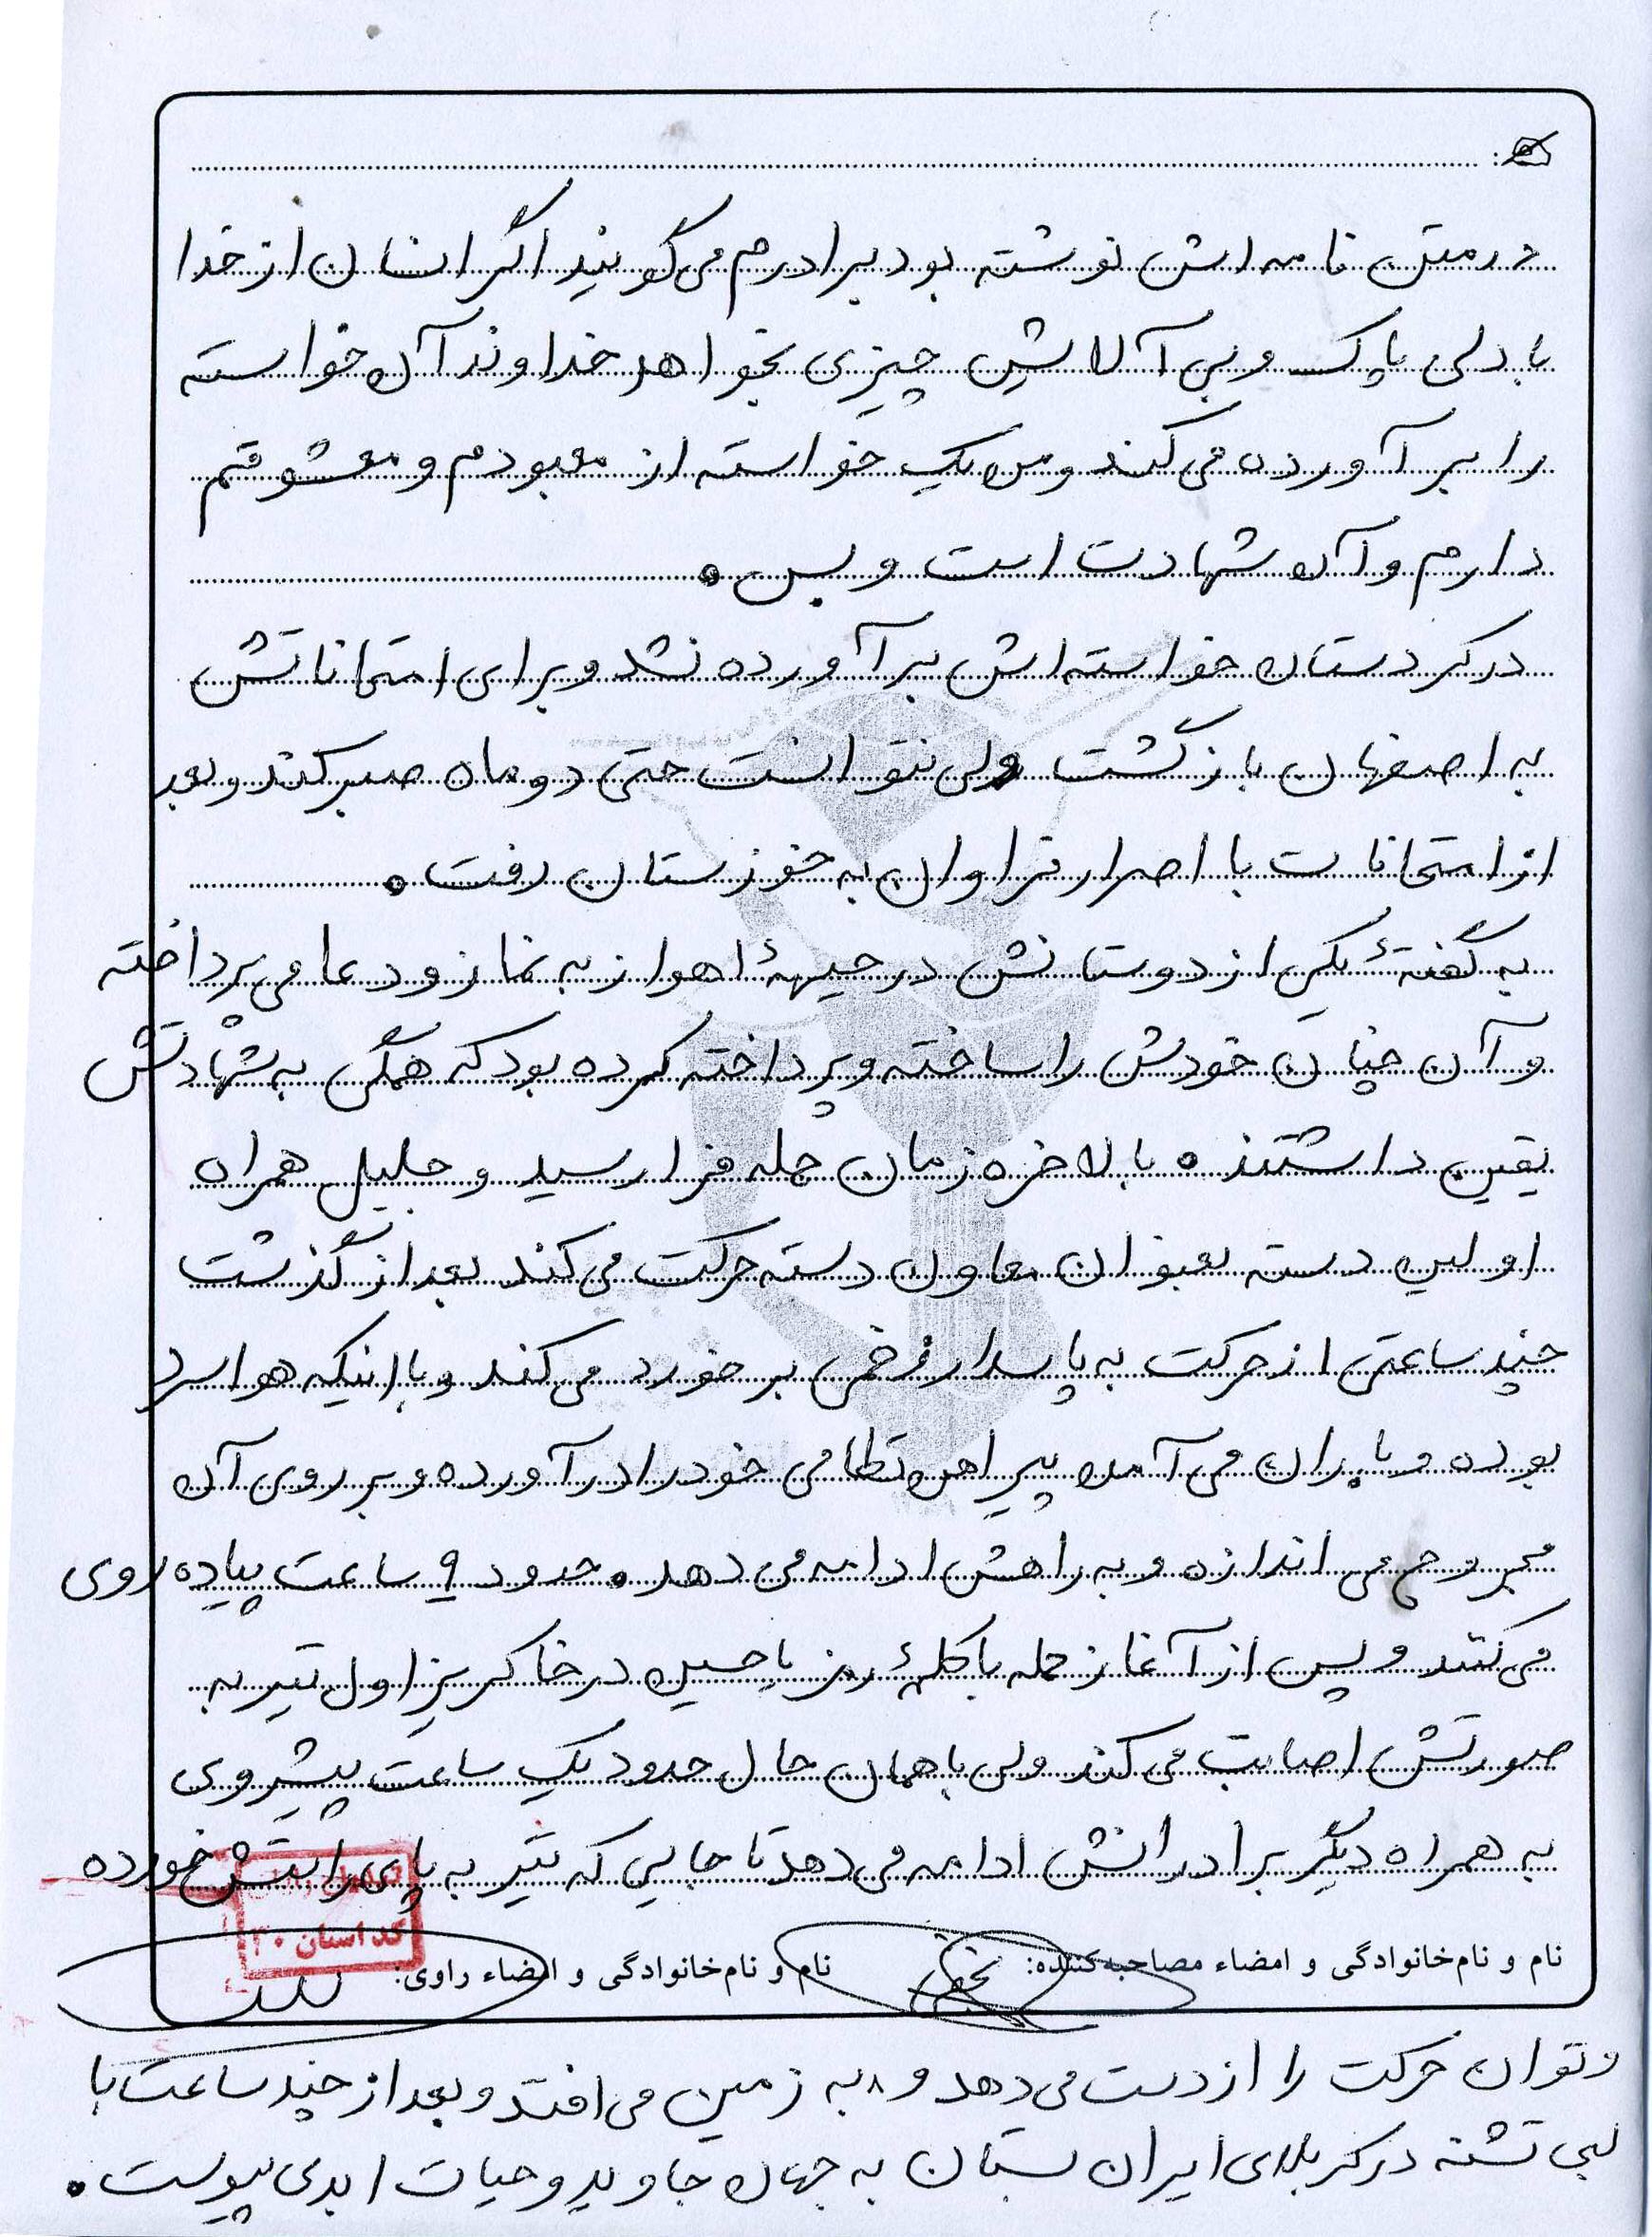 در متن نامه اش نوشته بود برادرم می گویند اگر انسان از خدا
با دلی پاک و بی آلایش چیزی بخواهد خداوند آن خواسته
را بر آورده می کند و من یک خواسته از معبودم و معشوقم
دارم و آن شهادت است و بس .
در کردستان خواسته اش بر آورده نشد و برای امتحاناتش
به اصفهان بازگشت ولی نتوانست حتی دو ماه صبر کند و بعد
از امتحانات با اصرار فراوان به خوزستان رفت .
به گفتهٔ یکی از دوستانش در جبههٔ اهواز به نماز و دعا می پرداخته
و آن چنان خودش را ساخته و پرداخته کرده بود که همگی به شهادتش
یقین داشتند . بالاخره زمان حمله فرا رسید و جلیل همراه
اولین دسته بعنوان معاون دسته حرکت می کند بعد از گذشت
چند ساعتی از حرکت به پاسدار زخمی بر خورد می کند و با اینکه هوا سرد
بوده و باران می آمده پیراهن نظامی خود را در آورده و بر روی آن
مجروح می اندازه و به راهش ادامه می دهد . حدود ۹ ساعت پیاده روی
می کنند و پس از آغاز حمله با کلمهٔ رمز یا حسین در خاکریز اول تیر به
صورتش اصابت می کند ولی با همان حال حدود یک ساعت پیشروی
به همراه دیگر برادرانش ادامه می دهد تا جایی که تیر به پای راستش خورده
کد استان ۳۰
نام و نام خانوادگی و امضاء مصاحبه کننده: نام و نام خانوادگی و امضاء راوی:
و توان حرکت را از دست می دهد و به زمین می افتد و بعد از چند ساعت با
لبی تشنه در کربلای ایران بستان به جهان جاوید و حیات ابدی پیوست .